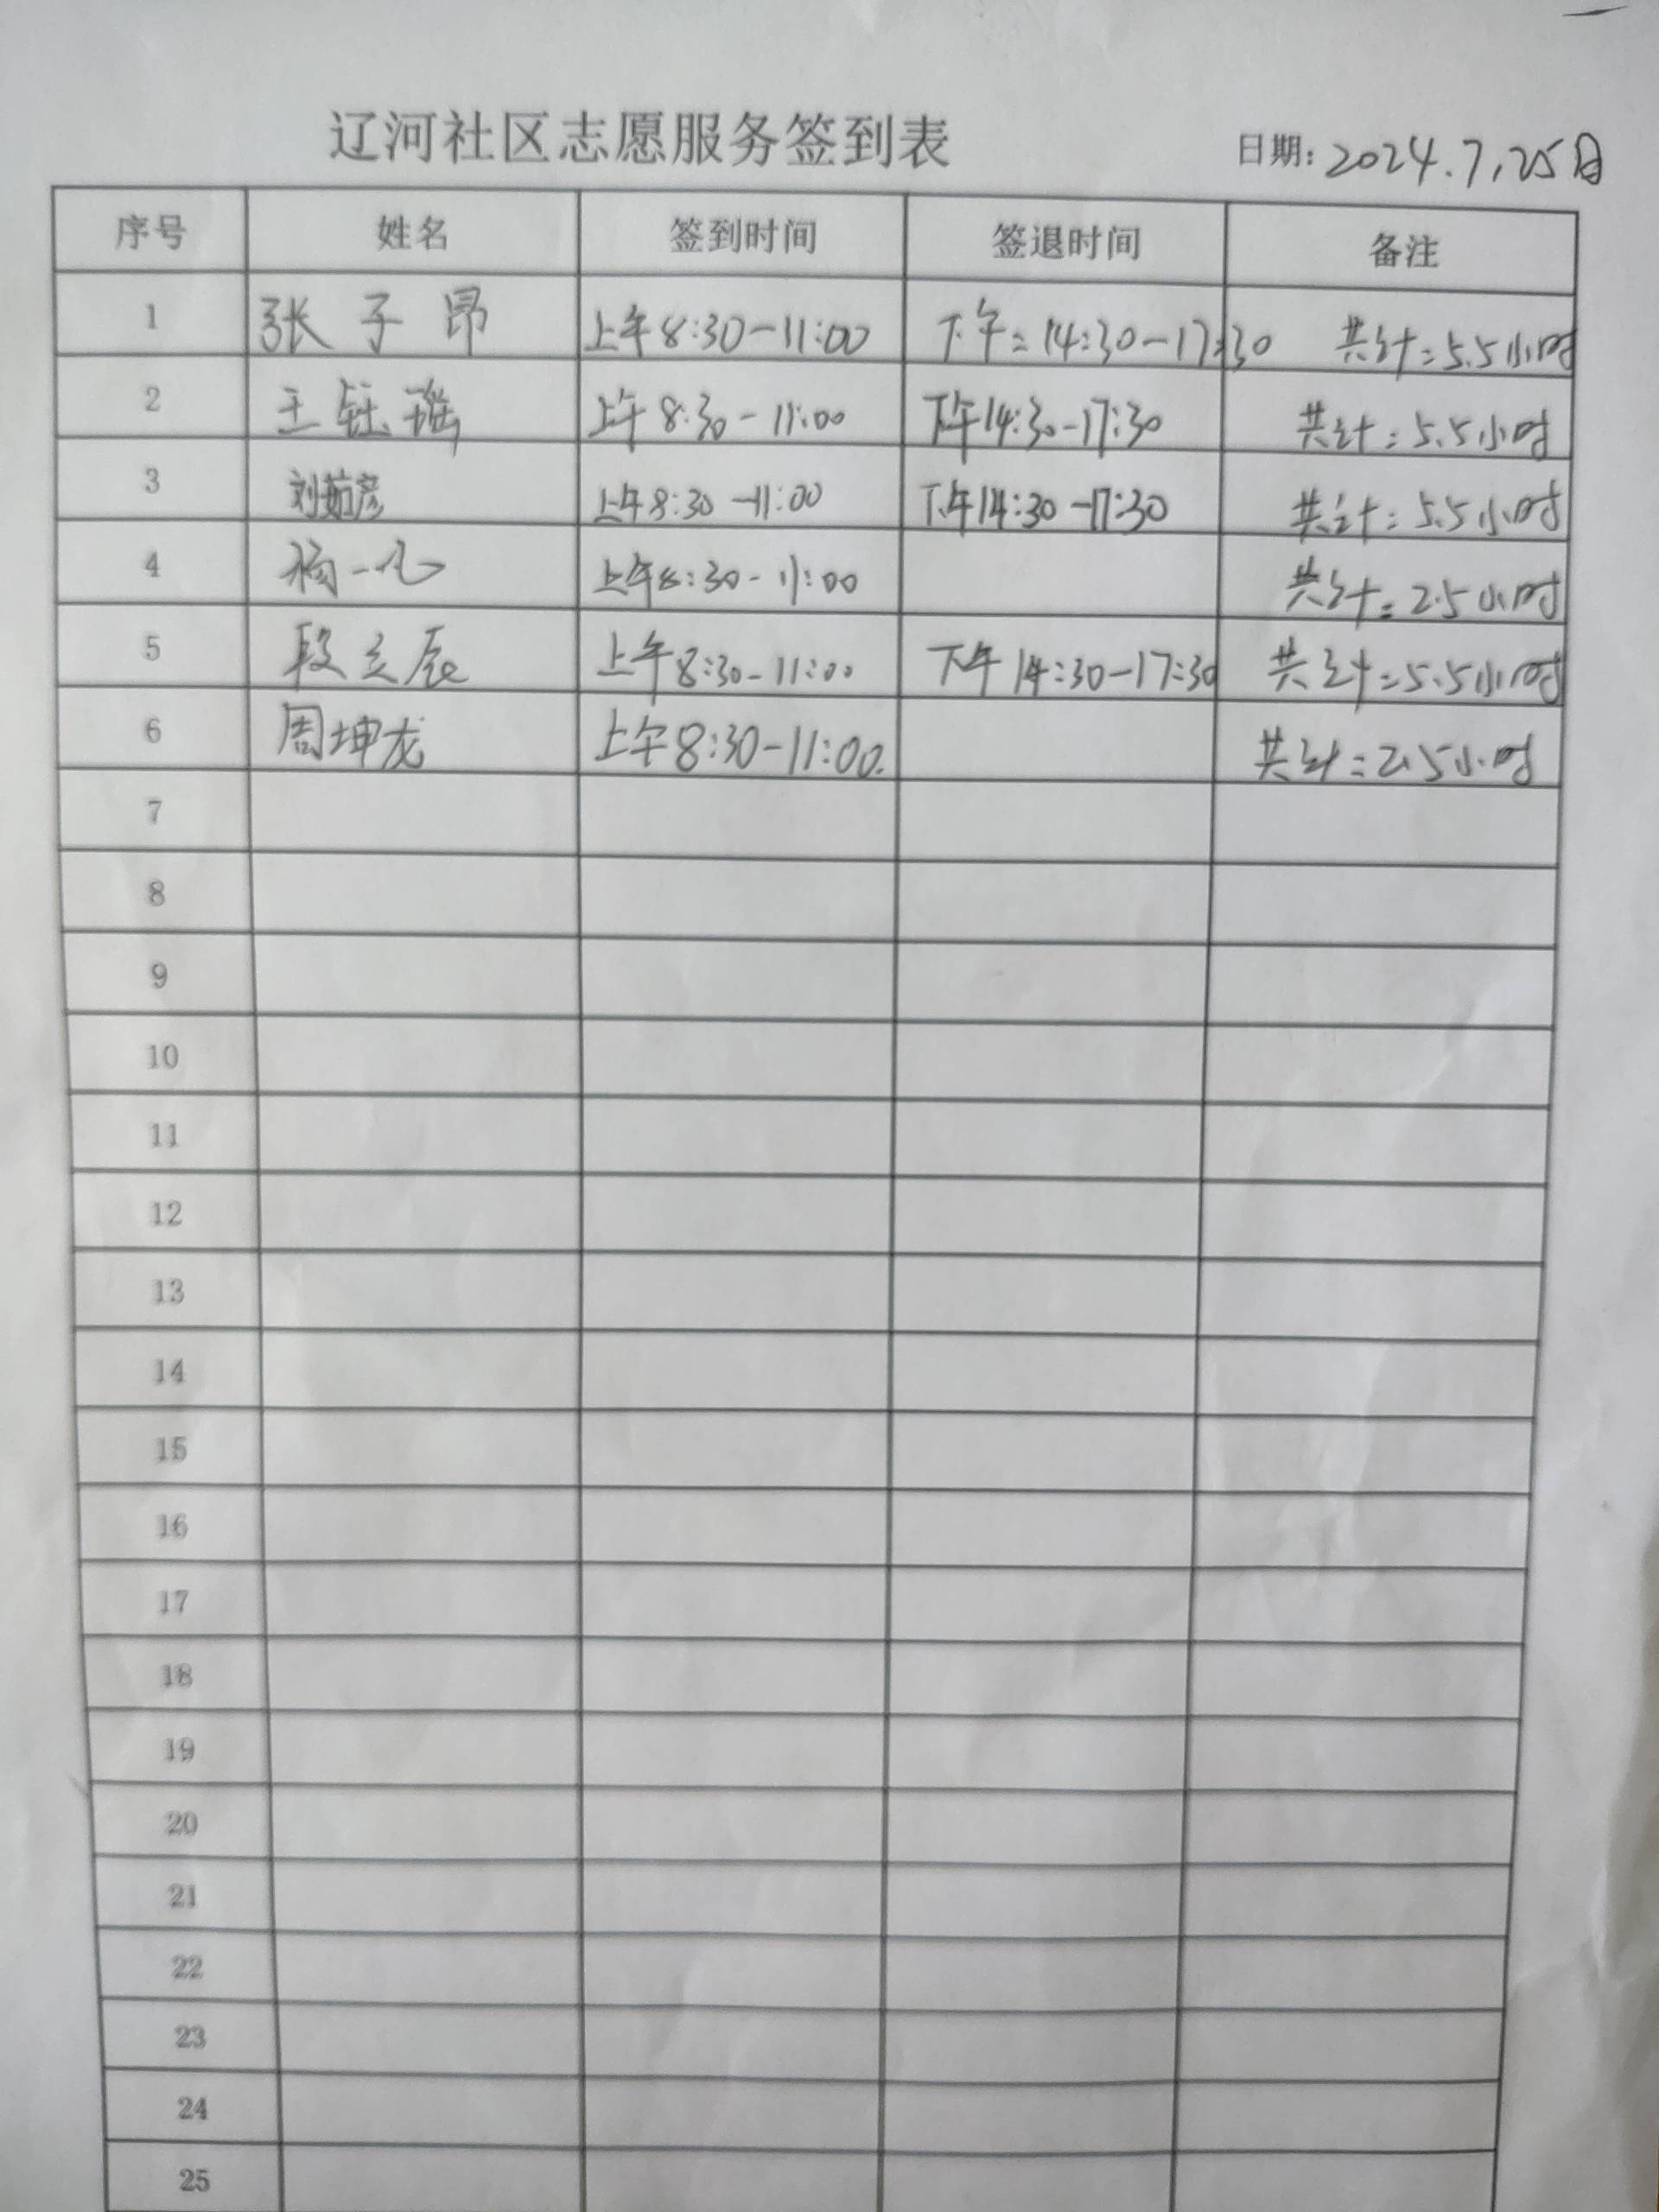 辽河社区志愿服务签到表 日期: 2024.7.25日
序号 姓名 签到时间 签退时间 备注
1 张子昂 上午8:30-11:00 下午:14:30-17:30 共计:5.5小时
2 王钰瑶 上午8:30-11:00 下午14:30-17:30 共计:5.5小时
3 刘茹彦 上午8:30-11:00 下午14:30-17:30 共计:5.5小时
4 杨一凡 上午8:30-11:00 共计:2.5小时
5 段立辰 上午8:30-11:00 下午14:30-17:30 共计:5.5小时
6 周坤龙 上午8:30-11:00. 共计:2.5小时
7
8
9
10
11
12
13
14
15
16
17
18
19
20
21
22
23
24
25